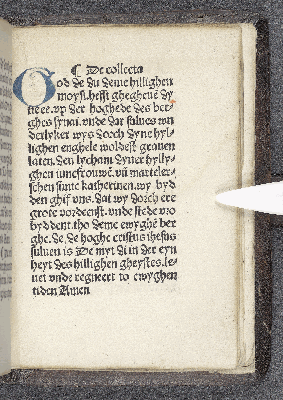 ¶ De collecta
God de du deme hillighen
moysi hefst ghegheuē dy
ne ee. vp der hoghede des ber-
ghes synai. vnde dar sulues wn
derlyker wys dorch dyne hyl-
lighen enghele woldest grauen
laten. den lycham dyner hylly-
ghen iuncfrouwē. vñ marteler-
schen sunte katherinen. wy byd
den ghif vns. dat wy dorch ere
grote vordenst. vnde stede vor
byddent. tho deme ewyghē ber
ghe. de de hoghe cristus ihesus
suluen is De myt di in der eyn
heyt des hillighen gheystes. le-
uet vnde regneert to ewyghen
tiden Amen